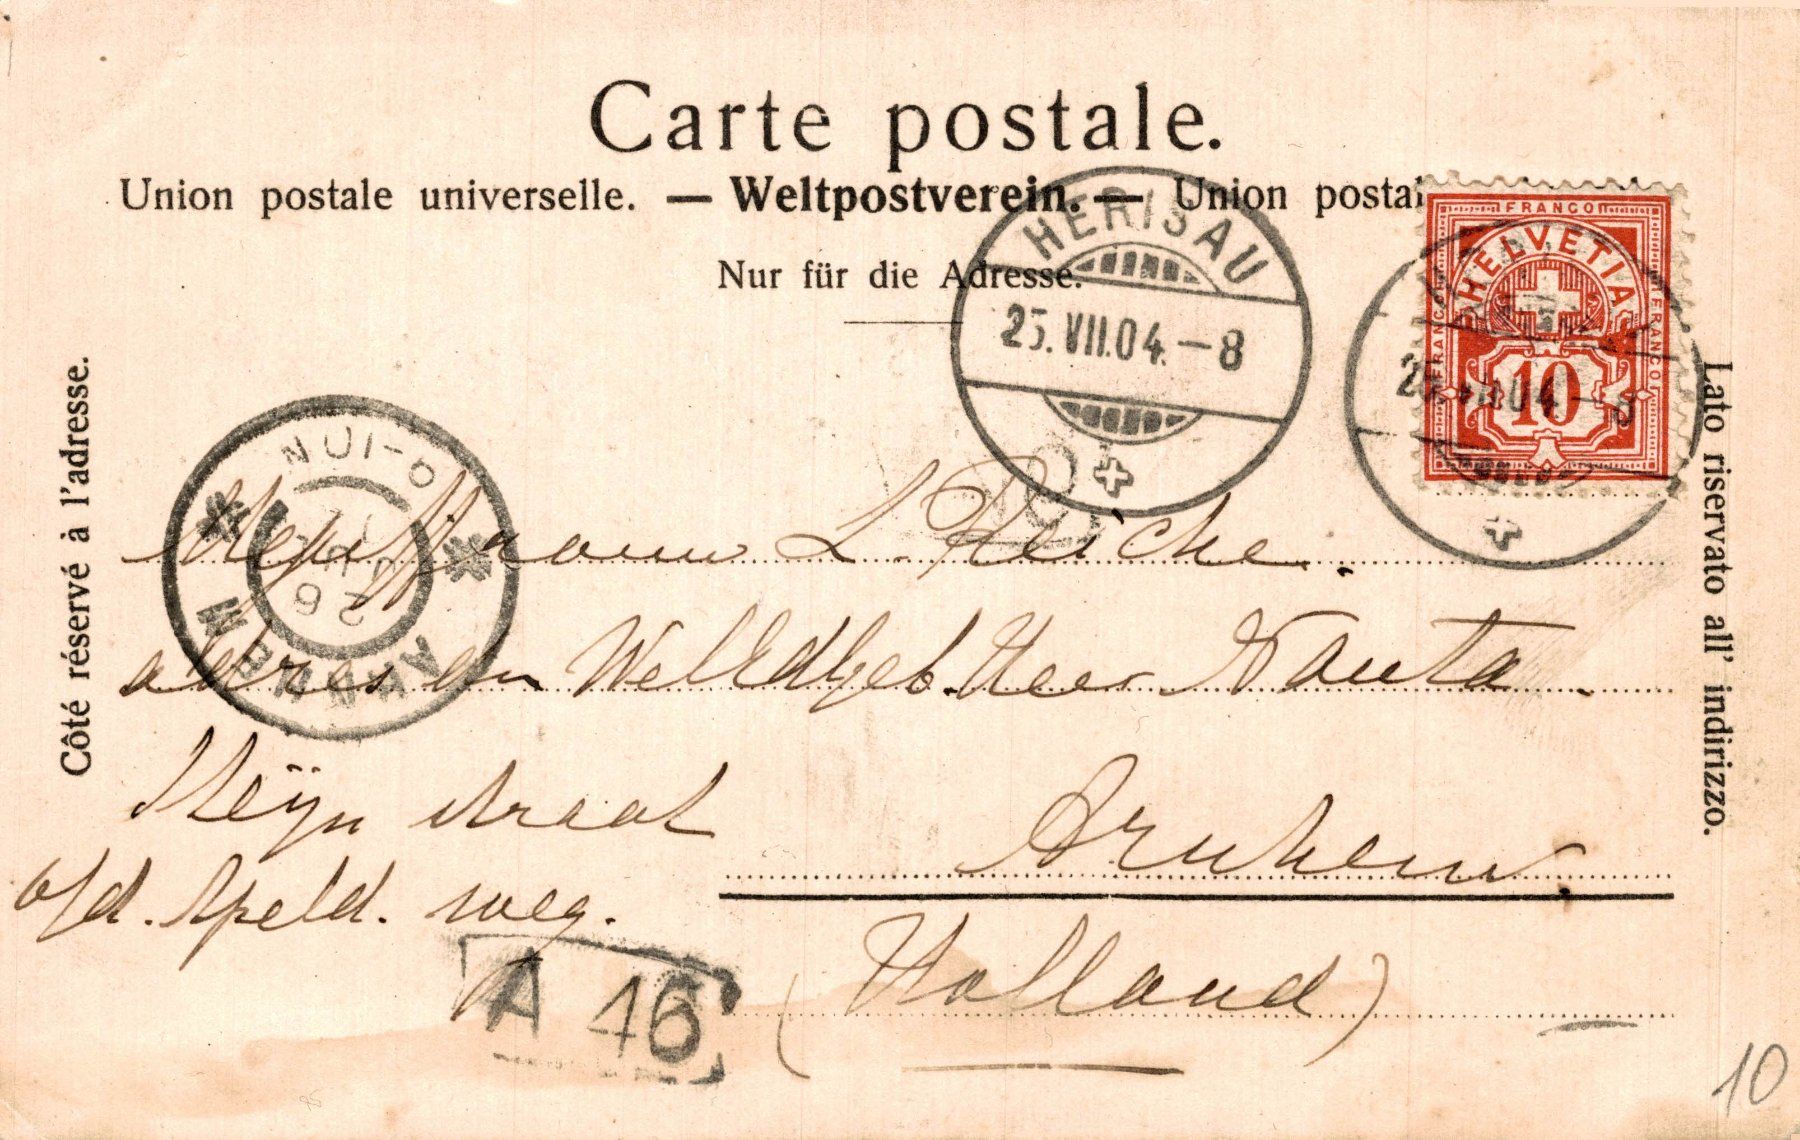 Carte postale.
Union postale universelle. — Weltpostverein. — Union postal
Nur für die Adresse.
Côté réservé à l'adresse.
Lato riservato all' indirizzo.
HERISAU
25.VII.04.—8
FRANCO
FRANCO
FRANCO
HELVETIA
10
VII.04.—8
ARNHEM
26
Mejuffrouw L. Reiche.
adres den WelEdGeb. Heer Nauta.
Steijn straat
Arnhem.
o/d. Apeld. weg.
(Holland)
A 46
10